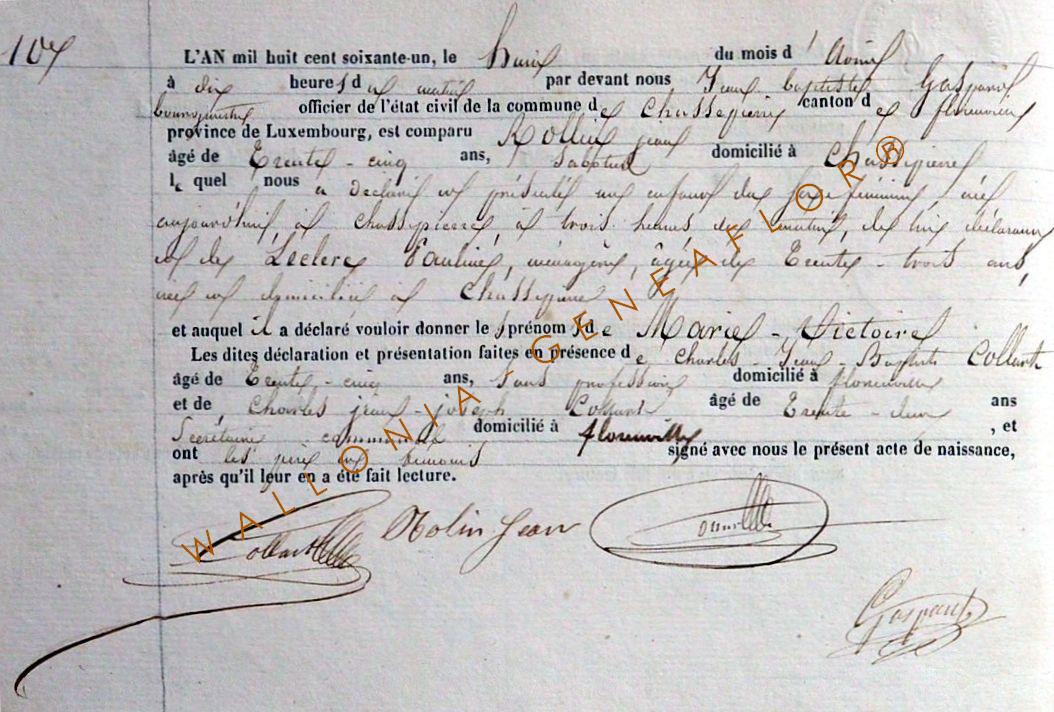 107
L'AN mil huit cent soixante-un, le huit du mois d'Avril
à dix heures du matin par devant nous Jean Baptiste Gaspard
bourgmestre officier de l'état civil de la commune de Chassepierre canton de florenville
province de Luxembourg, est comparu Rollin jean
âgé de Trente-cinq ans, Sabotier domicilié à Chassepierre
lequel nous a déclaré et présenté un enfant du sexe féminin, née
aujourd'hui, à Chassepierre, à trois heures du matin, de lui déclarant
et de Leclere Pauline, ménagère, âgée de Trente-trois ans,
née et domiciliée à Chassepierre
et auquel il a déclaré vouloir donner les prénoms de Marie-Victoire
Les dites déclaration et présentation faites en présence de Charles-Jean-Baptiste Collart
âgé de Trente-cinq ans, Sans profession domicilié à florenville
et de Charles jean-joseph Collart âgé de Trente-deux ans
Secrétaire communal domicilié à florenville, et
ont les père et témoins signé avec nous le présent acte de naissance,
après qu'il leur en a été fait lecture.
Collart Rolin Jean
Gaspard
WALLONIA-GENEAFLOR®